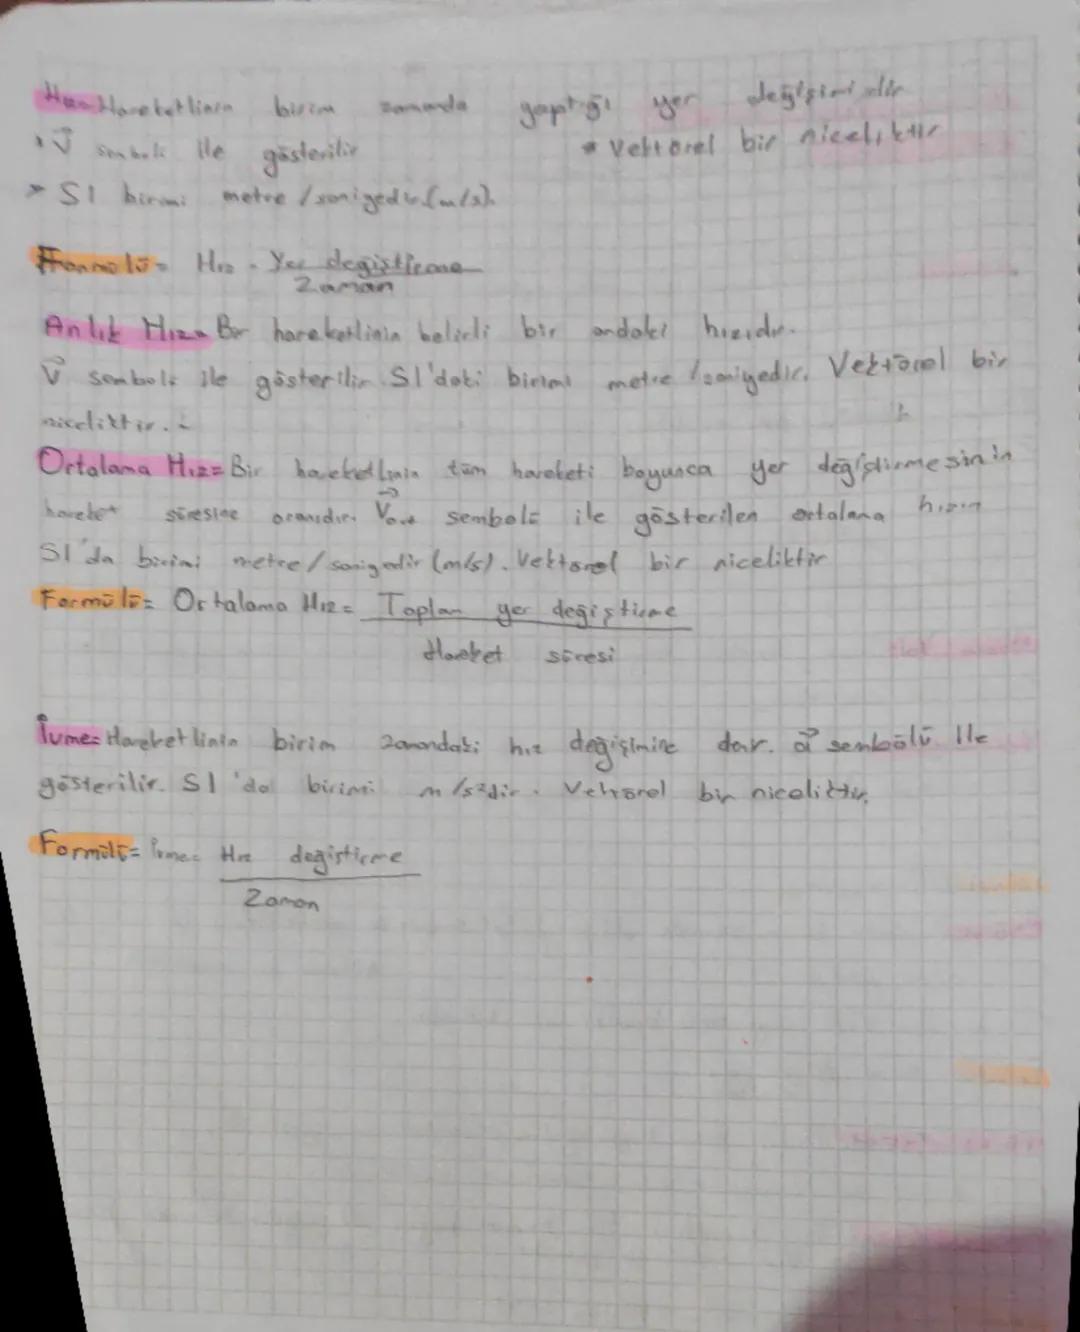 Hız= Hareketlinin birim zamanda yaptığı yer değişimidir
V⃗ sembolü ile gösterilir * Vektörel bir niceliktir
> SI birimi metre / saniyedir (m/s).
Formülü= Hız = Yer değiştirme
Zaman
Anlık Hız= Bir hareketlinin belirli bir andaki hızıdır.
V⃗ sembolü ile gösterilir. SI'daki birimi metre / saniyedir. Vektörel bir
niceliktir.
Ortalama Hız= Bir hareketlinin tüm hareketi boyunca yer değiştirmesinin
hareket süresine oranıdır. V⃗ort sembolü ile gösterilen ortalama hızın
SI'da birimi metre / saniyedir (m/s). Vektörel bir niceliktir
Formülü= Ortalama Hız= Toplam yer değiştirme
Hareket süresi
İvme= Hareketlinin birim zamandaki hız değişimine dar. a⃗ sembölü ile
gösterilir. SI 'da birimi m/s²dir. Vektörel bir niceliktir.
Formülü= İvme= Hız değiştirme
Zaman